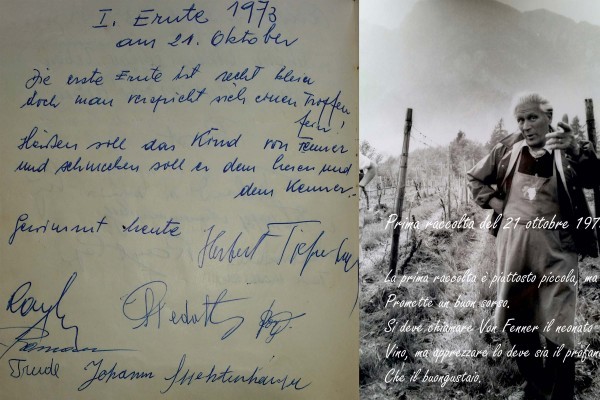 I. Ernte 1973
am 21. Oktober
Die erste Ernte ist recht klein
doch man verspricht sich einen Tropfen
fein!
Heißen soll das Kind von Fenner
und schmecken soll er dem Laien und
dem Kenner.
Gewimmt heute
Herbert
Trude Johann
Prima raccolta del 21 ottobre 197
La prima raccolta è piattosto piccola, ma
Promette un buon sorso.
Si deve chiamare Von Fenner il neonato
Vino, ma apprezzare lo deve sia il profan
Che il buongustaio.